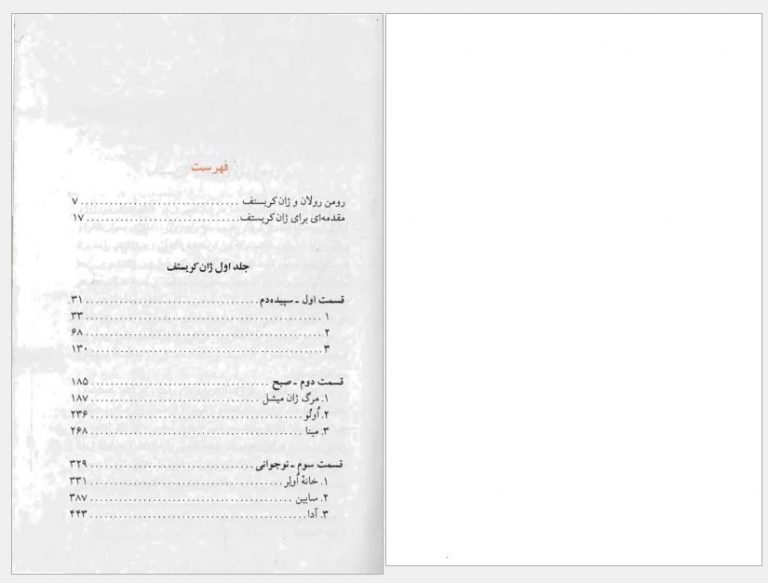 فهرست
رومن رولان و ژان کریستف ................................ ۷
مقدمه‌ای برای ژان کریستف ................................ ۱۷
جلد اول ژان کریستف
قسمت اول ـ سپیده‌دم ................................ ۳۱
۱ ................................ ۳۳
۲ ................................ ۶۸
۳ ................................ ۱۳۰
قسمت دوم ـ صبح ................................ ۱۸۵
۱. مرگ ژان میشل ................................ ۱۸۷
۲. اُوتُو ................................ ۲۳۶
۳. مینا ................................ ۲۶۸
قسمت سوم ـ نوجوانی ................................ ۳۲۹
۱. خانهٔ اُولِر ................................ ۳۳۱
۲. سابین ................................ ۳۸۷
۳. آدا ................................ ۴۴۳